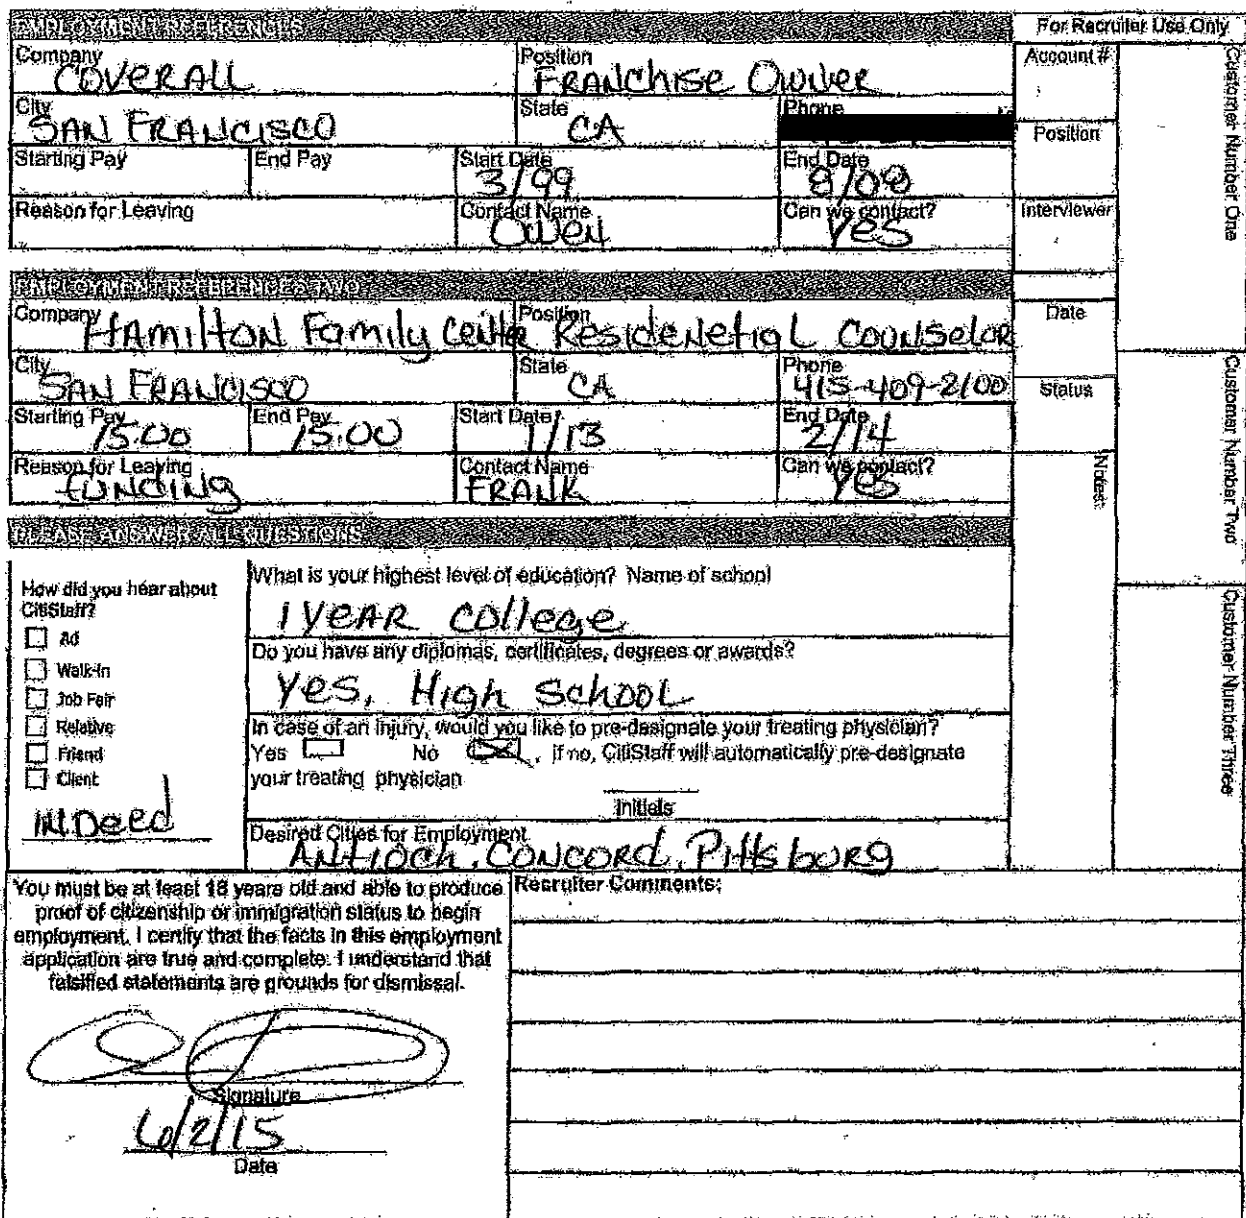 EMPLOYMENT REFERENCES
For Recruiter Use Only
Company COVERALL
Position FRANCHISE Owner
City SAN FRANCISCO
State CA
Phone
Starting Pay
End Pay
Start Date 3/99
End Date 8/08
Reason for Leaving
Contact Name Owen
Can we contact? Yes
EMPLOYMENT REFERENCES TWO
Company HAMILTON Family Center
Position Residenetial Counselor
City SAN FRANCISCO
State CA
Phone 415-409-2100
Starting Pay 15.00
End Pay 15.00
Start Date 1/13
End Date 2/14
Reason for Leaving FUNDING
Contact Name FRANK
Can we contact? Yes
PLEASE ANSWER ALL QUESTIONS
How did you hear about
CitiStaff?
Ad
Walk-In
Job Fair
Relative
Friend
Client
INDeed
What is your highest level of education? Name of school
1 YEAR College
Do you have any diplomas, certificates, degrees or awards?
Yes, High School
In case of an injury, would you like to pre-designate your treating physician?
Yes No , if no, CitiStaff will automatically pre-designate
your treating physician
Initials
Desired Cities for Employment
ANTIOCH, CONCORD, PittsbURG
You must be at least 18 years old and able to produce
proof of citizenship or immigration status to begin
employment. I certify that the facts in this employment
application are true and complete. I understand that
falsified statements are grounds for dismissal.
Signature
6/2/15
Date
Recruiter Comments:
Account #
Position
Interviewer
Date
Status
Notes:
Customer Number One
Customer Number Two
Customer Number Three